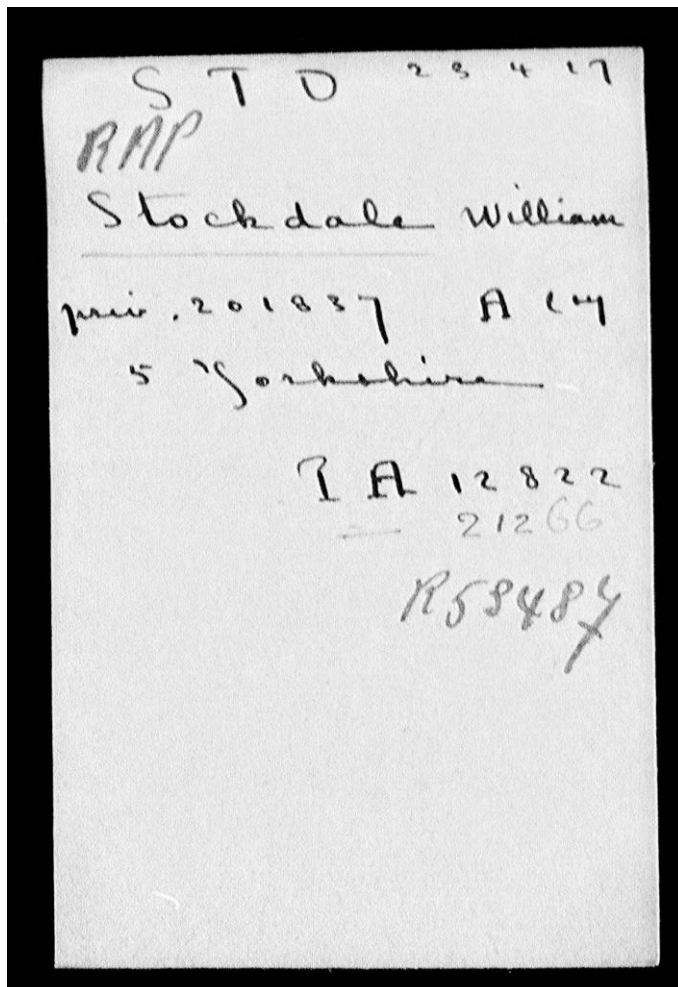 S T D 23 4 17
RAP
Stockdale William
priv. 201837 A Cy
5 Yorkshire
P A 12822
21266
R59487